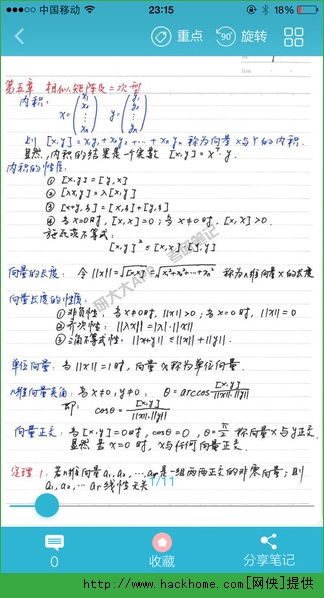 中国移动 23:15 18%
重点 旋转
第五章 相似矩阵及二次型
内积: x=(x₁ x₂ ⋮ xₙ) y=(y₁ y₂ ⋮ yₙ)
则 [x,y]=x₁y₁+x₂y₂+…+xₙyₙ 称为向量x与y的内积.
显然,内积的结果是个实数 [x,y]=xᵀ·y.
内积的性质:
① [x,y]=[y,x]
② [λx,y]=λ[x,y]
③ [x+y,z]=[x,z]+[y,z]
④ 当x=0时,[x,x]=0;当x≠0时,[x,x]>0.
施瓦茨不等式:
[x,y]²≤[x,x]·[y,y]
向量的长度: 令||x||=√[x,x]=√x₁²+x₂²+…+xₙ² 称为n维向量x的长度
向量长度的性质:
①非负性: 当x≠0时,||x||>0;当x=0时,||x||=0
②齐次性: ||λx||=|λ|·||x||
③三角不等式: ||x+y||≤||x||+||y||.
单位向量: 当||x||=1时,向量x称为单位向量.
n维向量夹角: 当x≠0,y≠0, θ=arccos [x,y]/||x||·||y||
即: cosθ=[x,y]/||x||·||y||
向量正交: 当[x,y]=0时,cosθ=0,θ=π/2 称向量x与y正交.
显然 若x=0时,x与任何向量正交.
定理1: 若n维向量a₁,a₂,…,aᵣ是一组两两正交的非零向量;则
a₁,a₂,…aᵣ线性无关
1/11
0 收藏 分享笔记
http://www.hackhome.com[网侠]提供